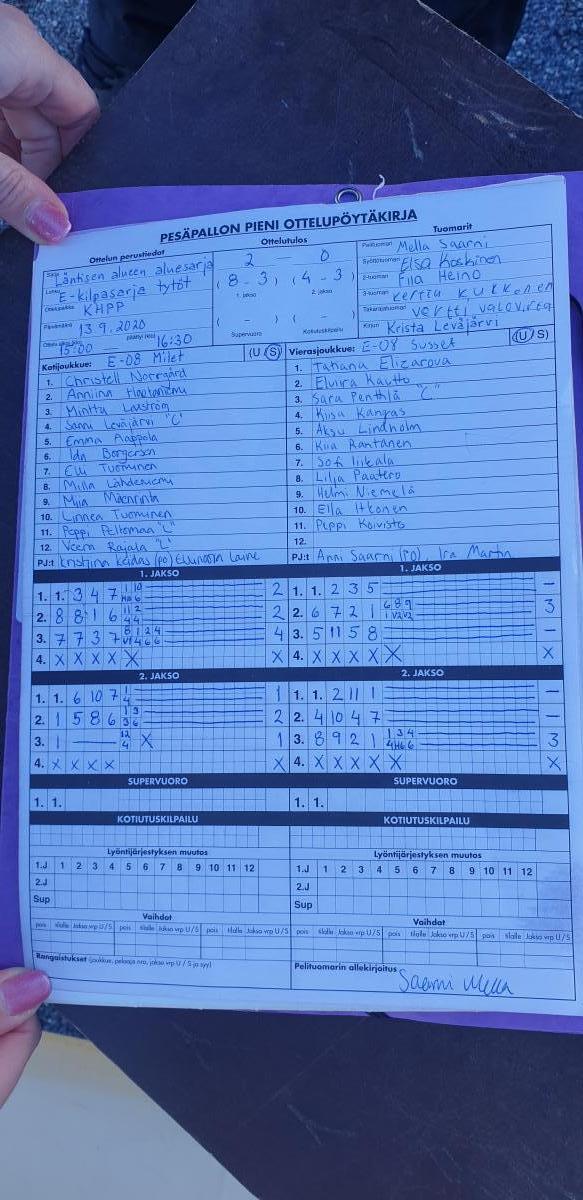 PESÄPALLON PIENI OTTELUPÖYTÄKIRJA
Ottelun perustiedot
Ottelutulos
Tuomarit
Sarja Läntisen alueen aluesarja
E-kilpasarja tytöt
Ottelupaikka KHPP
Päivämäärä 13.9.2020
15:00 16:30
2 — 0
( 8 - 3 ) ( 4 - 3 )
1. jakso 2. jakso
( - ) ( - )
Supervuoro Kotiutuskilpailu
Pelituomari Mella Saarni
Syöttötuomari Elsa Koskinen
2-tuomari Fiia Heino
3-tuomari Kerttu Kukkonen
Takarajatuomari Vertti
Kirjuri Krista Leväjärvi
Kotijoukkue: E-08 Milet (U/S)
1. Christell Norrgård
2. Anniina
3. Minttu
4. Sanni Leväjärvi "C"
5. Emma Aappola
6. Ida Borgersen
7. Elli Tuominen
8. Milla Lähdeniemi
9. Miia Mäenrinta
10. Linnea Tuominen
11. Peppi Peltomaa "L"
12. Veera Rajala "L"
PJ:t Kristiina Keidas (PO)
Vierasjoukkue: E-08 Susset (U/S)
1. Tatiana Elizarova
2. Elvira Kautto
3. Sara Penttilä "C"
4. Kiisa Kangas
5. Aksu Lindholm
6. Kiia Rantanen
7. Sofi Iikala
8. Lilja Paatero
9. Helmi Niemelä
10. Ella Itkonen
11. Peppi Koivisto
12.
PJ:t Anni Saarni (PO), Ira Martin
1. JAKSO
1. 1. 3 4 7 2
2. 8 8 1 6 2
3. 7 7 3 7 4
4. X X X X X X
1. JAKSO
1. 1. 2 3 5 —
2. 6 7 2 1 3
3. 5 11 5 8 —
4. X X X X X X
2. JAKSO
1. 1. 6 10 7 1
2. 1 5 8 6 2
3. 1 — X 1
4. X X X X X
2. JAKSO
1. 1. 2 11 1 —
2. 4 10 4 7 —
3. 8 9 2 1 3
4. X X X X X X
SUPERVUORO
1. 1.
SUPERVUORO
1. 1.
KOTIUTUSKILPAILU
KOTIUTUSKILPAILU
Lyöntijärjestyksen muutos
1.J 1 2 3 4 5 6 7 8 9 10 11 12
2.J
Sup
Lyöntijärjestyksen muutos
1.J 1 2 3 4 5 6 7 8 9 10 11 12
2.J
Sup
Vaihdot
pois tilalle Jakso vrp U/S pois tilalle Jakso vrp U/S
Vaihdot
pois tilalle Jakso vrp U/S pois tilalle Jakso vrp U/S
Rangaistukset (joukkue, pelaaja nro, jakso vrp U/S ja syy)
Pelituomarin allekirjoitus
Saarni Mella